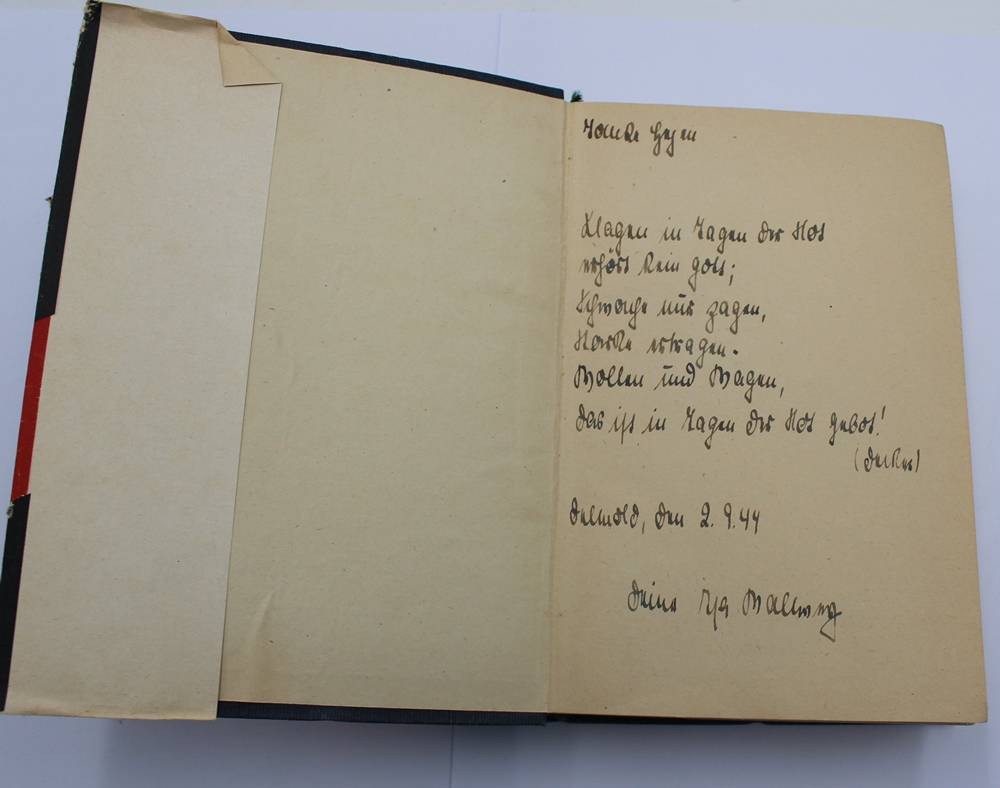 Klagen in Tagen der Not
erhört kein Gott;
Schwache nur zagen,
Starke ertragen.
Wollen und Wagen,
das ist in Tagen der Not Gebot!
Detmold, den 2. 9. 44
Deine Wallweg